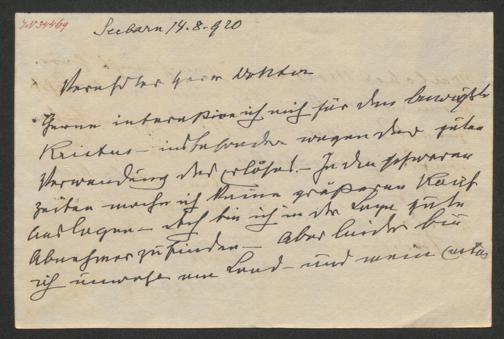 IN 34469
Seebarn 14.8.920
Verehrter Herr Doktor
Gerne interessire ich mich für den bewußten
Kristus – insbesondere wegen der guten
Verwendung des Erlöses. – In den schweren
Zeiten mache ich keine größeren Kauf
Auslagen – doch bin ich in der Lage gute
Abnehmer zu finden – Aber leider bin
ich immer am Land – und mein